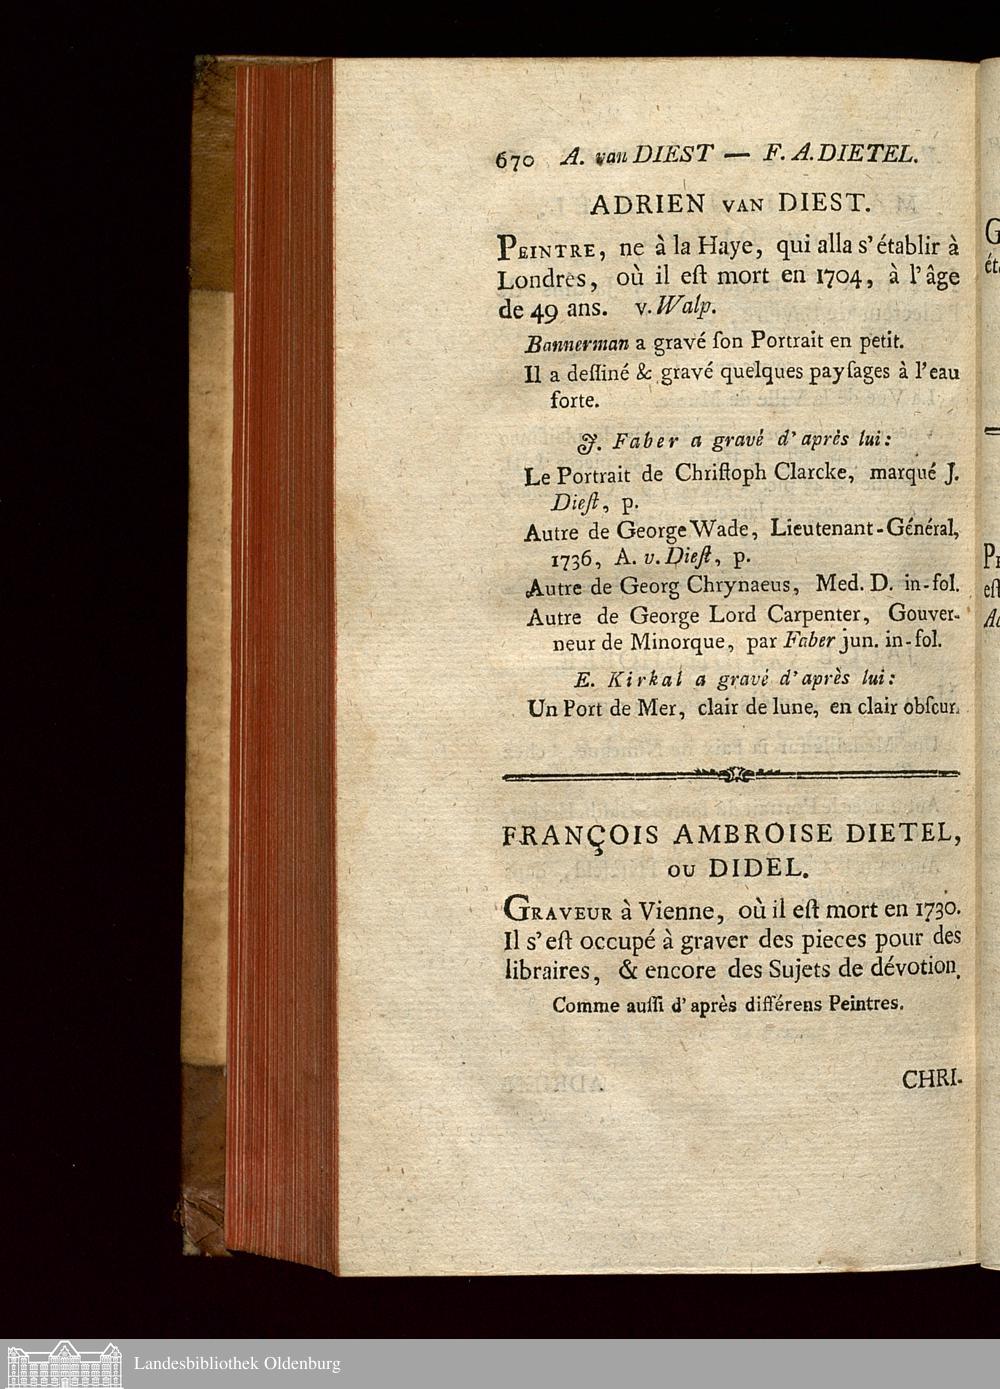 670 A. van DIEST — F. A. DIETEL.
ADRIEN VAN DIEST.
PEINTRE, ne à la Haye, qui alla s'établir à
Londres, où il eſt mort en 1704, à l'âge
de 49 ans. v. Walp.
Bannerman a gravé ſon Portrait en petit.
Il a deſſiné & gravé quelques payſages à l'eau
forte.
J. Faber a gravé d'après lui:
Le Portrait de Chriſtoph Clarcke, marqué J.
Dieſt, p.
Autre de George Wade, Lieutenant-Général,
1736, A. v. Dieſt, p.
Autre de Georg Chrynaeus, Med. D. in-fol.
Autre de George Lord Carpenter, Gouver-
neur de Minorque, par Faber jun. in-fol.
E. Kirkal a gravé d'après lui:
Un Port de Mer, clair de lune, en clair obſcur.
FRANÇOIS AMBROISE DIETEL,
OU DIDEL.
GRAVEUR à Vienne, où il eſt mort en 1730.
Il s'eſt occupé à graver des pieces pour des
libraires, & encore des Sujets de dévotion.
Comme auſſi d'après différens Peintres.
CHRI-
Landesbibliothek Oldenburg